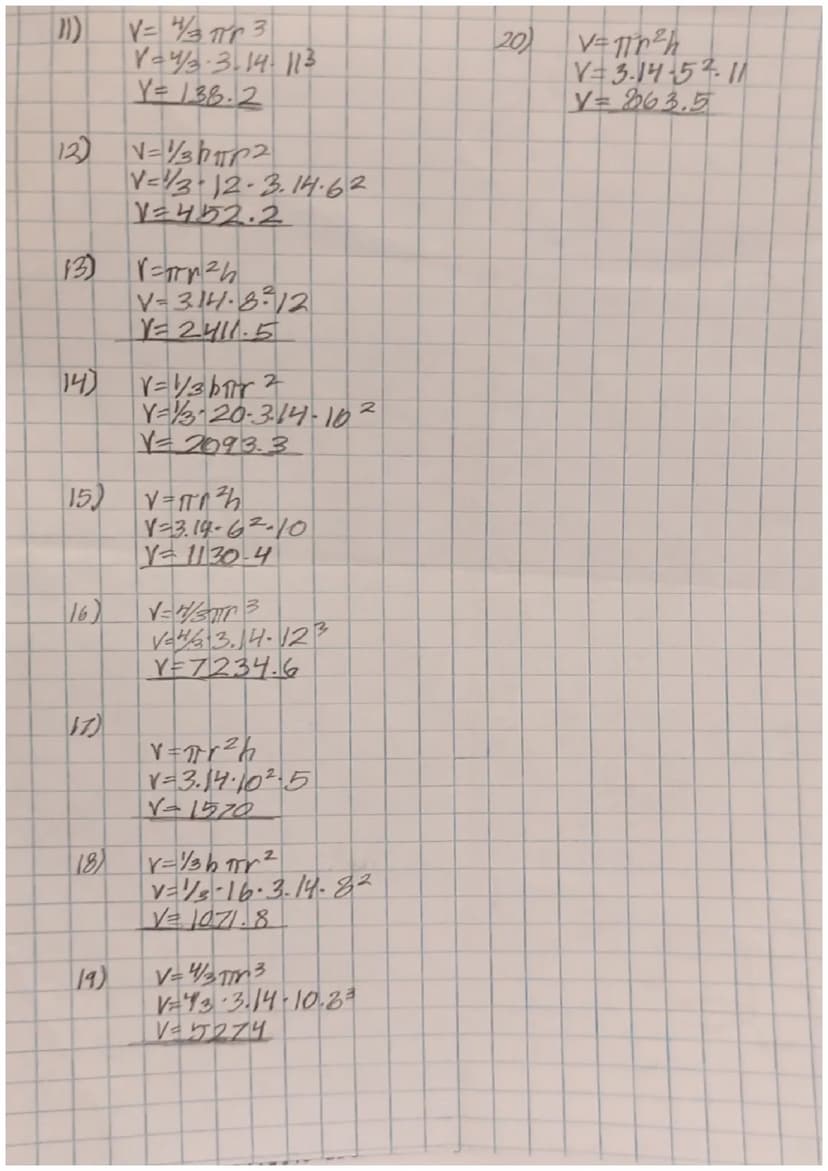 11) V= 4/3 πr³
V=4/3·3.14·11³
V=138.2
12) V=1/3hπr2
V=1/3·12·3.14·6²
V=452.2
13) V=πr²h
V=3.14·8²·12
V=2411.5
14) V=1/3hπr²
V=1/3·20·3.14·10²
V=2093.3
15) V=πr²h
V=3.14·6²·10
V=1130.4
16) V=4/3πr³
V=4/3·3.14·12³
V=7234.6
17)
V=πr²h
V=3.14·10²·5
V=1570
18) V=1/3hπr²
V=1/3·16·3.14·8²
V=1071.8
19) V=4/3πr³
V=4/3·3.14·10.8³
V=5274
20) V=πr²h
V=3.14·5²·11
V=863.5